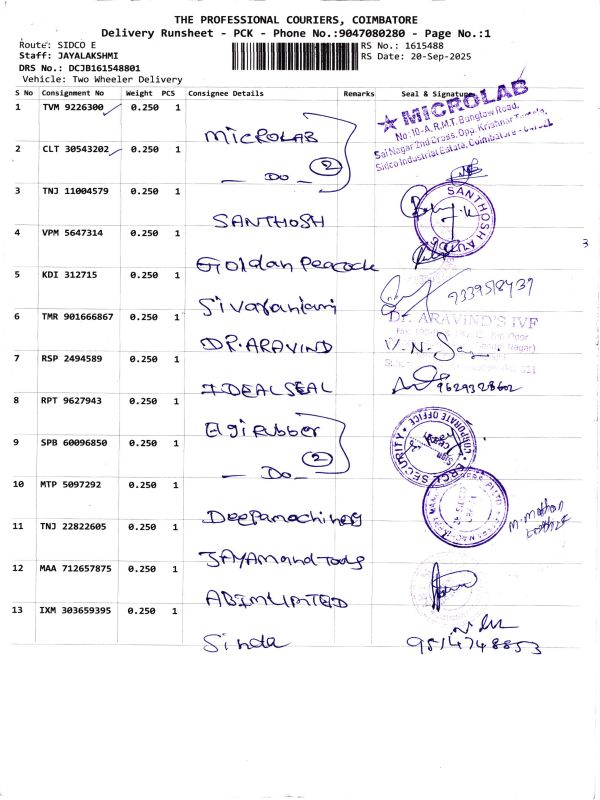 THE PROFESSIONAL COURIERS, COIMBATORE
Delivery Runsheet - PCK - Phone No.:9047080280 - Page No.:1
Route: SIDCO E
RS No.: 1615488
Staff: JAYALAKSHMI
RS Date: 20-Sep-2025
DRS No.: DCJB161548801
Vehicle: Two Wheeler Delivery
S No Consignment No Weight PCS Consignee Details Remarks Seal & Signature
1 TVM 9226300 0.250 1 MICROLAB
★ MICROLAB
No:10-A, R.M.T. Bunglow Road,
Sai Nagar 2nd Cross, Opp. Krishnar Temple,
Sidco Industrial Estate, Coimbatore
2 CLT 30543202 0.250 1 — Do — 2
3 TNJ 11004579 0.250 1 SANTHOSH
SANTHOSH
4 VPM 5647314 0.250 1 Goldan Peacock
3
5 KDI 312715 0.250 1 Sivaranjani
6 TMR 901666867 0.250 1 DR.ARAVIND
Dr. ARAVIND'S IVF
7 RSP 2494589 0.250 1 IDEAL SEAL 9629328602
8 RPT 9627943 0.250 1 Elgi rubber
CORPORATE OFFICE
SECURITY
9 SPB 60096850 0.250 1 — Do — 2
10 MTP 5097292 0.250 1 Deepamachinery
11 TNJ 22822605 0.250 1 JAYAM and Tools
12 MAA 712657875 0.250 1 ABIMLIMITED
13 IXM 303659395 0.250 1 Sinda
9514748853